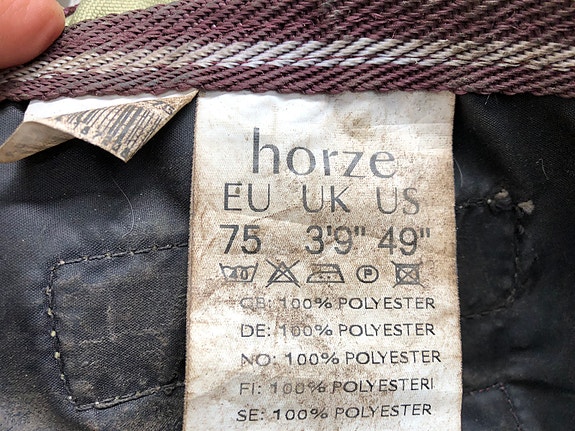 horze
EU UK US
75 3'9" 49"
GB: 100% POLYESTER
DE: 100% POLYESTER
NO: 100% POLYESTER
FI: 100% POLYESTERI
SE: 100% POLYESTER